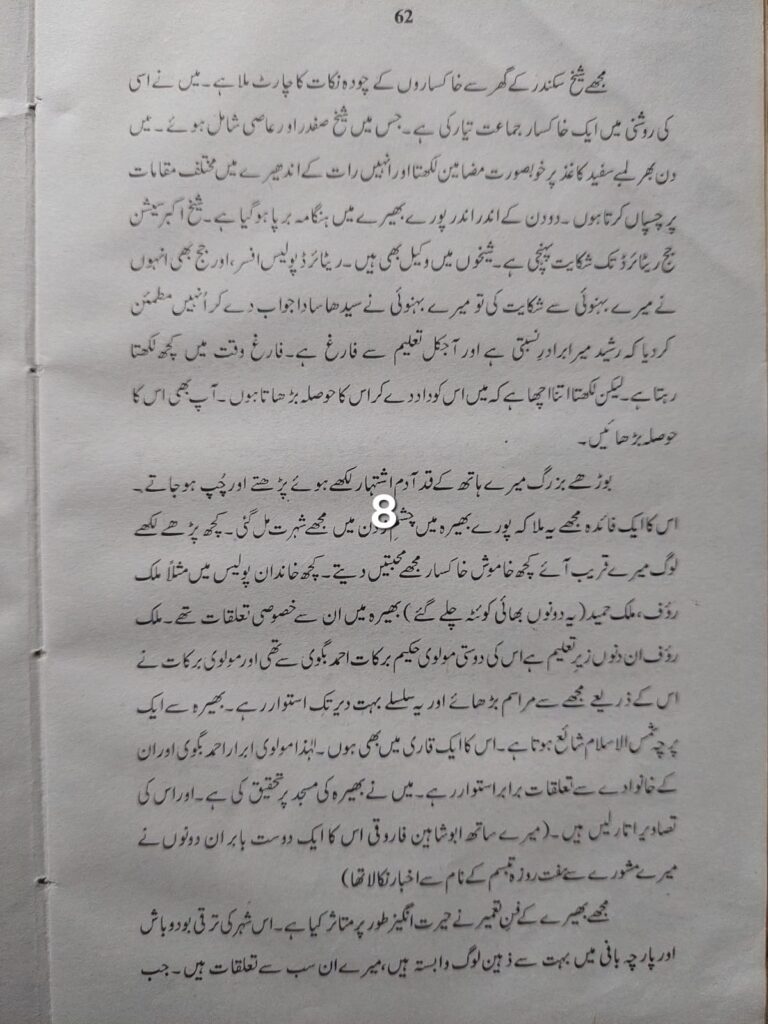 62
مجھے شیخ سکندر کے گھر سے خاکساروں کے چودہ نکات کا چارٹ ملا ہے۔ میں نے اسی
کی روشنی میں ایک خاکسار جماعت تیار کی ہے۔ جس میں شیخ صفدر اور عاصی شامل ہوئے۔ میں
دن بھر لمبے سفید کاغذ پر خوبصورت مضامین لکھتا اور انہیں رات کے اندھیرے میں مختلف مقامات
پر چسپاں کرتا ہوں۔ دو دن کے اندر اندر پورے بھیرے میں ہنگامہ برپا ہو گیا ہے۔ شیخ اکبر سیشن
جج ریٹائرڈ تک شکایت پہنچی ہے۔ شیخوں میں وکیل بھی ہیں۔ ریٹائرڈ پولیس افسر، اور جج بھی انہوں
نے میرے بہنوئی سے شکایت کی تو میرے بہنوئی نے سیدھا سادا جواب دے کر اُنہیں مطمئن
کر دیا کہ رشید میرا برادرِ نسبتی ہے اور آجکل تعلیم سے فارغ ہے۔ فارغ وقت میں کچھ لکھتا
رہتا ہے۔ لیکن لکھتا اتنا اچھا ہے کہ میں اس کو داد دے کر اس کا حوصلہ بڑھاتا ہوں۔ آپ بھی اس کا
حوصلہ بڑھائیں۔
بوڑھے بزرگ میرے ہاتھ کے قد آدم اشتہار لکھے ہوئے پڑھتے اور چُپ ہو جاتے۔
اس کا ایک فائدہ مجھے یہ ملا کہ پورے بھیرہ میں چشم زدن میں مجھے شہرت مل گئی۔ کچھ پڑھے لکھے
8
لوگ میرے قریب آئے کچھ خاموش خاکسار مجھے محبتیں دیتے۔ کچھ خاندان پولیس میں مثلاً ملک
رؤف، ملک حمید (یہ دونوں بھائی کوئٹہ چلے گئے) بھیرہ میں ان سے خصوصی تعلقات تھے۔ ملک
رؤف ان دنوں زیرِ تعلیم ہے اس کی دوستی مولوی حکیم برکات احمد بگوی سے تھی اور مولوی برکات نے
اس کے ذریعے مجھے سے مراسم بڑھائے اور یہ سلسلے بہت دیر تک استوار رہے۔ بھیرہ سے ایک
پرچہ شمس الاسلام شائع ہوتا ہے۔ اس کا ایک قاری میں بھی ہوں۔ لہٰذا مولوی ابرار احمد بگوی اور ان
کے خانوادے سے تعلقات برابر استوار رہے۔ میں نے بھیرہ کی مسجد پر تحقیق کی ہے۔ اور اس کی
تصاویر اتار لیں ہیں۔ (میرے ساتھ ابو شاہین فاروقی اس کا ایک دوست بابر ان دونوں نے
میرے مشورے سے ہفت روزہ تبسم کے نام سے اخبار نکالا تھا)
مجھے بھیرے کے فنِ تعمیر نے حیرت انگیز طور پر متاثر کیا ہے۔ اس شہر کی ترقی بود و باش
اور پارچہ بافی میں بہت سے ذہین لوگ وابستہ ہیں، میرے ان سب سے تعلقات ہیں۔ جب